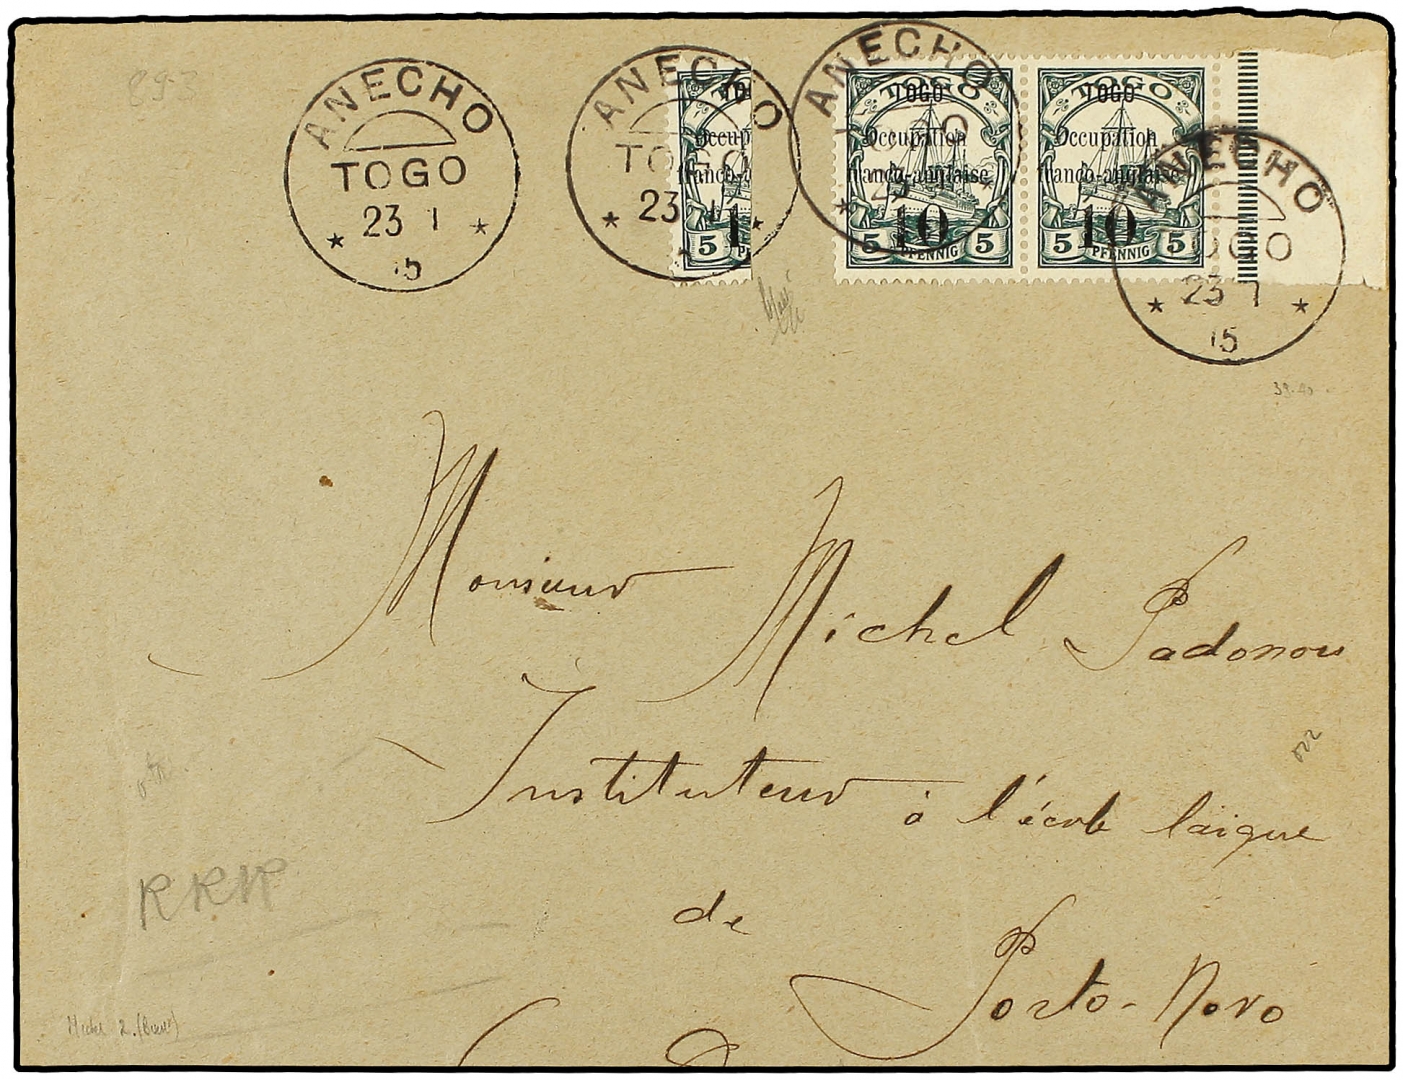 ANECHO
TOGO
23 1
15
ANECHO
TOGO
23 1
ANECHO
TOGO
23
ANECHO
TOGO
23 1
15
TO
Occup
franco-a
1
5
TOGO
TOGO
Occupation
franco-anglaise
10
5 PFENNIG 5
TOGO
TOGO
Occupation
franco-anglaise
10
5 PFENNIG 5
Monsieur Michel Padonou
Instituteur à l'école laïque
de
Porto-Novo
RRR